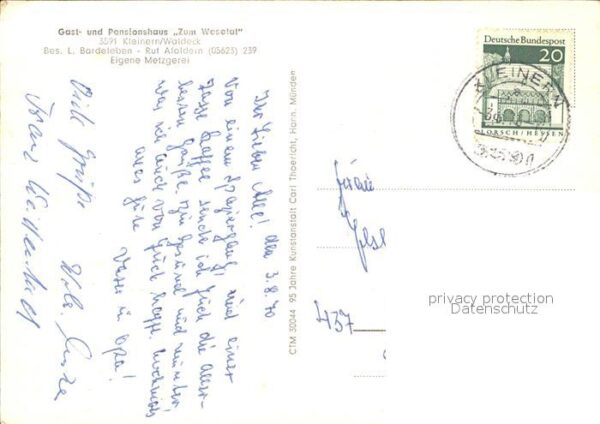 Gast- und Pensionshaus „Zum Wesetal“
3591 Kleinern/Waldeck
Bes. L. Bardeleben - Ruf Afoldern (05623) 239
Eigene Metzgerei
Deutsche Bundespost
20
LORSCH/HESSEN
KLEINERN
Ihr Lieben Alle! den 3.8.70
Von einem Spaziergang und einer
Tasse Kaffee sende ich Euch die aller-
besten Grüße. Bin gesund und munter
was ich auch von Euch hoffe. Nochmals
alles Gute
Vater u. Opa!
Viele Grüße
Frau
437
CTM 30044 95 Jahre Kunstanstalt Carl Thoericht, Hann. Münden
privacy protection
Datenschutz